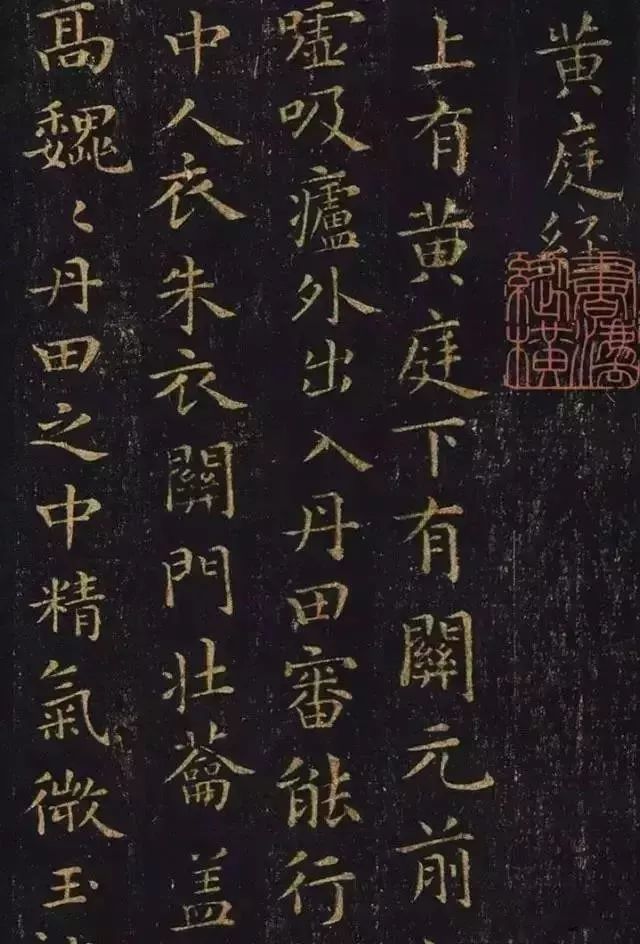 黄庭經
上有黄庭下有關元前
嘘吸廬外出入丹田審能行
中人衣朱衣關門壯蘥盖
高巍〻丹田之中精氣微玉
書濤縱橫